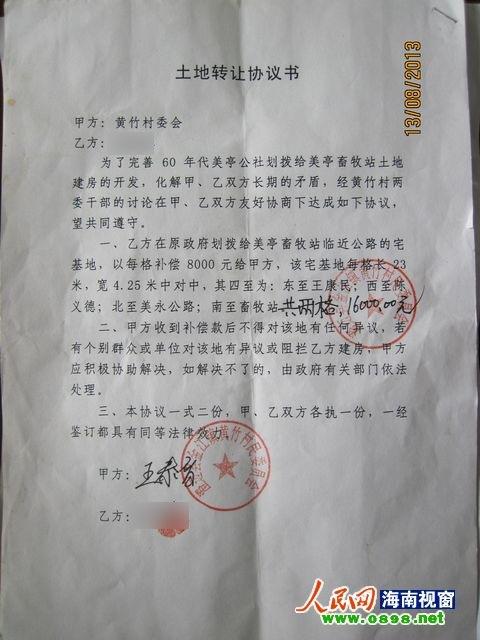 土地转让协议书
13/08/2013
甲方：黄竹村委会
乙方：
为了完善 60 年代美亭公社划拨给美亭畜牧站土地
建房的开发，化解甲、乙双方长期的矛盾，经黄竹村两
委干部的讨论在甲、乙双方友好协商下达成如下协议，
望共同遵守。
一、乙方在原政府划拨给美亭畜牧站临近公路的宅
基地，以每格补偿 8000 元给甲方，该宅基地每格长 23
米，宽 4.25 米中对中，其四至为：东至王康民；西至陈
义德；北至美永公路；南至畜牧站 共两格，16000.00元
二、甲方收到补偿款后不得对该地有任何异议，若
有个别群众或单位对该地有异议或阻拦乙方建房，甲方
应积极协助解决，如解决不了的，由政府有关部门依法
处理。
三、本协议一式二份，甲、乙双方各执一份，一经
签订都具有同等法律效力。
甲方：
黄竹村民委员会
乙方：
人民网 海南视窗
www.0898.net